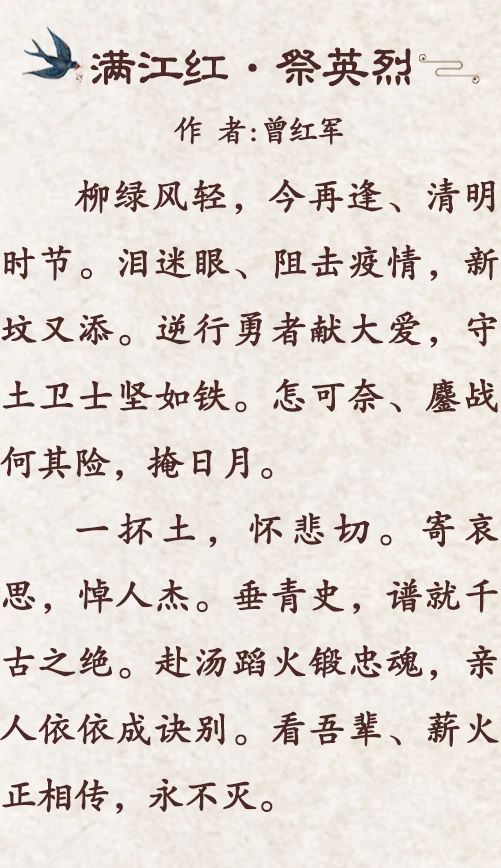 满江红·祭英烈
作 者:曾红军
柳绿风轻，今再逢、清明
时节。泪迷眼、阻击疫情，新
坟又添。逆行勇者献大爱，守
土卫士坚如铁。怎可奈、鏖战
何其险，掩日月。
一抔土，怀悲切。寄哀
思，悼人杰。垂青史，谱就千
古之绝。赴汤蹈火锻忠魂，亲
人依依成诀别。看吾辈、薪火
正相传，永不灭。